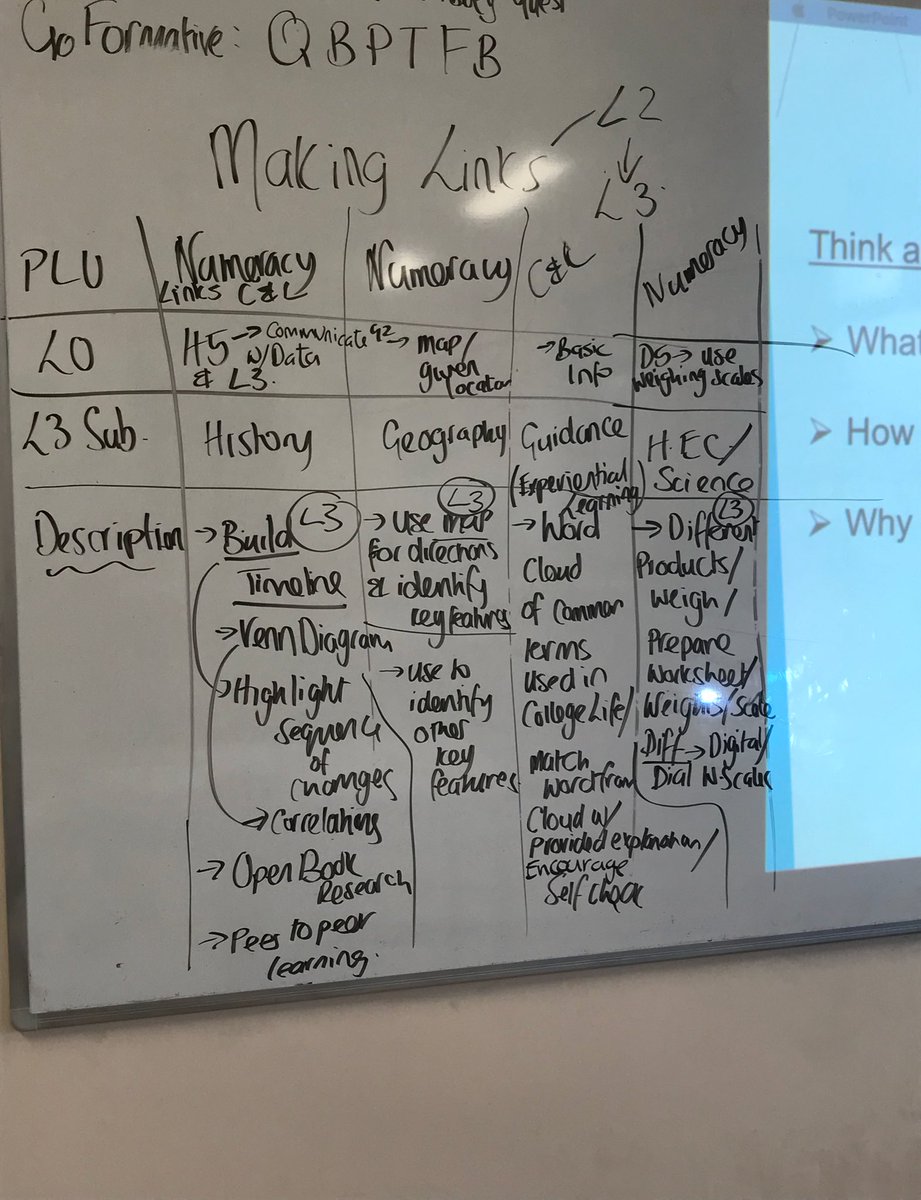 quest
Go Formative: QBPTFB
Making Links L2
L3
PLU
Numeracy
Links C&L
Numeracy
C&L
Numeracy
LO
H5 → Communicate
w/Data
& L3.
G2 → map/
given
location
→ Basic
Info
D5 → use
weighing scales
L3 Sub.
History
Geography
Guidance
(Experiential
Learning)
H.EC/
Science
Description
→ Build L3
Timeline
→ Venn Diagram
→ Highlight
sequence
of
changes
→ Correlating
→ Open Book
Research
→ Peer to peer
learning.
L3
→ use map
for directions
& identify
key features
→ use to
identify
other
key
features
→ Word
Cloud
of common
terms
used in
College Life/
match
word from
Cloud w/
provided explanation/
Encourage
Self check
L3
→ Different
Products/
weigh/
Prepare
worksheet/
Weights/Scale
Diff → Digital/
Dial W Scales
PowerPoint
Think a
➤ What
➤ How
➤ Why